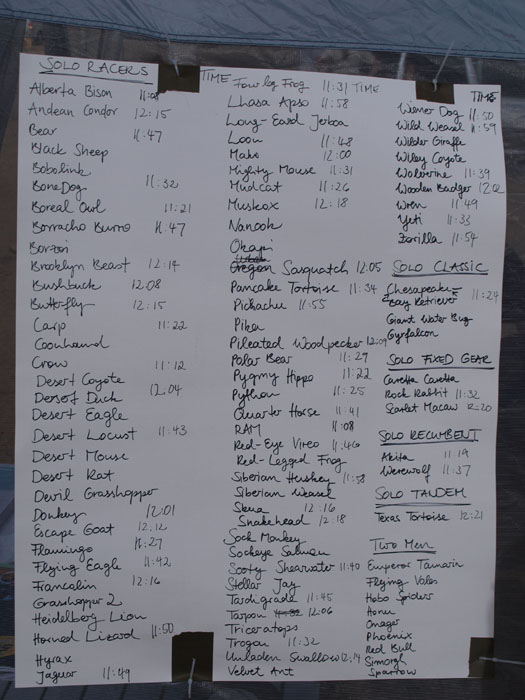 SOLO RACERS TIME
Alberta Bison 11:08
Andean Condor 12:15
Bear 11:47
Black Sheep
Bobolink
BoneDog 11:32
Boreal Owl 11:21
Borracho Burro 11:47
Borzoi
Brooklyn Beast 12:14
Bushbuck 12:08
Butterfly 12:15
Carp 11:22
Coonhound
Crow 11:12
Desert Coyote
Desert Duck 12:04
Desert Eagle
Desert Locust 11:43
Desert Mouse
Desert Rat
Devil Grasshopper
Donkey 12:01
Escape Goat 12:12
Flamingo 11:27
Flying Eagle 11:42
Francolin 12:16
Grasshopper 2
Heidelberg Lion
Horned Lizard 11:50
Hyrax
Jaguar 11:49
Four leg Frog 11:31 TIME
Lhasa Apso 11:58
Long-Eared Jerboa
Loon 11:48
Mako 12:00
Mighty Mouse 11:31
Mudcat 11:26
Muskox 12:18
Nanook
Okapi
Oregon Sasquatch 12:05
Pancake Tortoise 11:34
Pickachu 11:55
Pika
Pileated Woodpecker 12:09
Polar Bear 11:29
Pygmy Hippo 11:22
Python 11:25
Quarter Horse 11:41
RAM 11:08
Red-Eye Vireo 11:46
Red-Legged Frog
Siberian Huskey 11:58
Siberian Weasel
Skua 12:16
Snakehead 12:18
Sock Monkey
Sockeye Salmon
Sooty Shearwater 11:40
Stellar Jay
Tardigrade 11:45
Tarpon 12:06
Triceratops
Trogon 11:32
Unladen Swallow 12:14
Velvet Ant
TIME
Wiener Dog 11:50
Wild Weasel 11:59
Wilder Giraffe
Wiley Coyote
Wolverine 11:39
Wooden Badger 12:02
Wren 11:49
Yeti 11:33
Zorilla 11:54
SOLO CLASSIC
Chesapeake
Bay Retriever 11:24
Giant Water Bug
Gyrfalcon
SOLO FIXED GEAR
Caretta Caretta
Rock Rabbit 11:32
Scarlet Macaw 12:20
SOLO RECUMBENT
Akita 11:19
Werewolf 11:37
SOLO TANDEM
Texas Tortoise 12:21
Two Men
Emperor Tamarin
Flying Voles
Hobo Spider
Honu
Onager
Phoenix
Red Bull
Simorgh
Sparrow